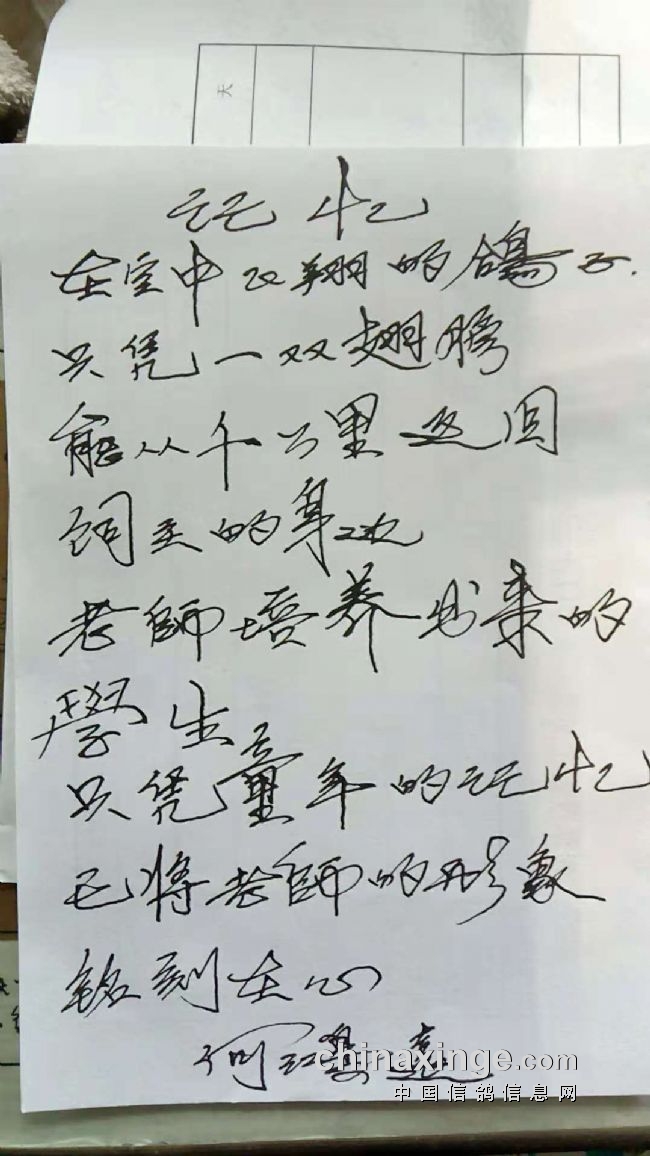 天
记忆
在空中飞翔的鴿子.
只凭一双翅膀
能从千公里返回
饲主的身边
老師培养出来的
學生
只凭童年的记忆
已将老師的形象
铭刻在心
何
chinaxinge.com
中国信鸽信息网